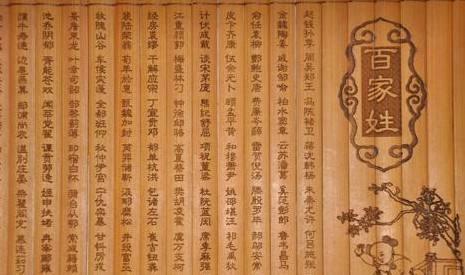 百家姓
赵钱孙李 周吴郑王 冯陈褚卫 蒋沈韩杨 朱秦尤许 何吕施张
金魏陶姜 戚谢邹喻 柏水窦章 云苏潘葛 奚范彭郎 鲁韦昌马
俞任袁柳 酆鲍史唐 费廉岑薛 雷贺倪汤 滕殷罗毕 郝邬安常
皮卞齐康 伍余元卜 顾孟平黄 和穆萧尹 姚邵湛汪 祁毛禹狄
计伏成戴 谈宋茅庞 熊纪舒屈 项祝董梁 杜阮蓝闵 席季麻强
江童颜郭 梅盛林刁 钟徐邱骆 高夏蔡田 樊胡凌霍 虞万支柯
经房裘缪 干解应宗 丁宣贲邓 郁单杭洪 包诸左石 崔吉钮龚
裴陆荣翁 荀羊於惠 甄加封 芮羿储靳 汲邴糜松 井段富巫
牧隗山谷 车侯宓蓬 全郗班仰 秋仲伊宫 宁仇栾暴 甘钭厉戎
景詹束龙 叶幸司韶 郜黎蓟薄 印宿白怀 蒲台从鄂 索咸籍赖
池乔阴郁 胥能苍双 闻莘党翟 谭贡劳逄 姬申扶堵 冉宰郦雍
濮牛寿通 边扈燕冀 郏浦尚农 温别庄晏 柴瞿阎充 慕连茹习